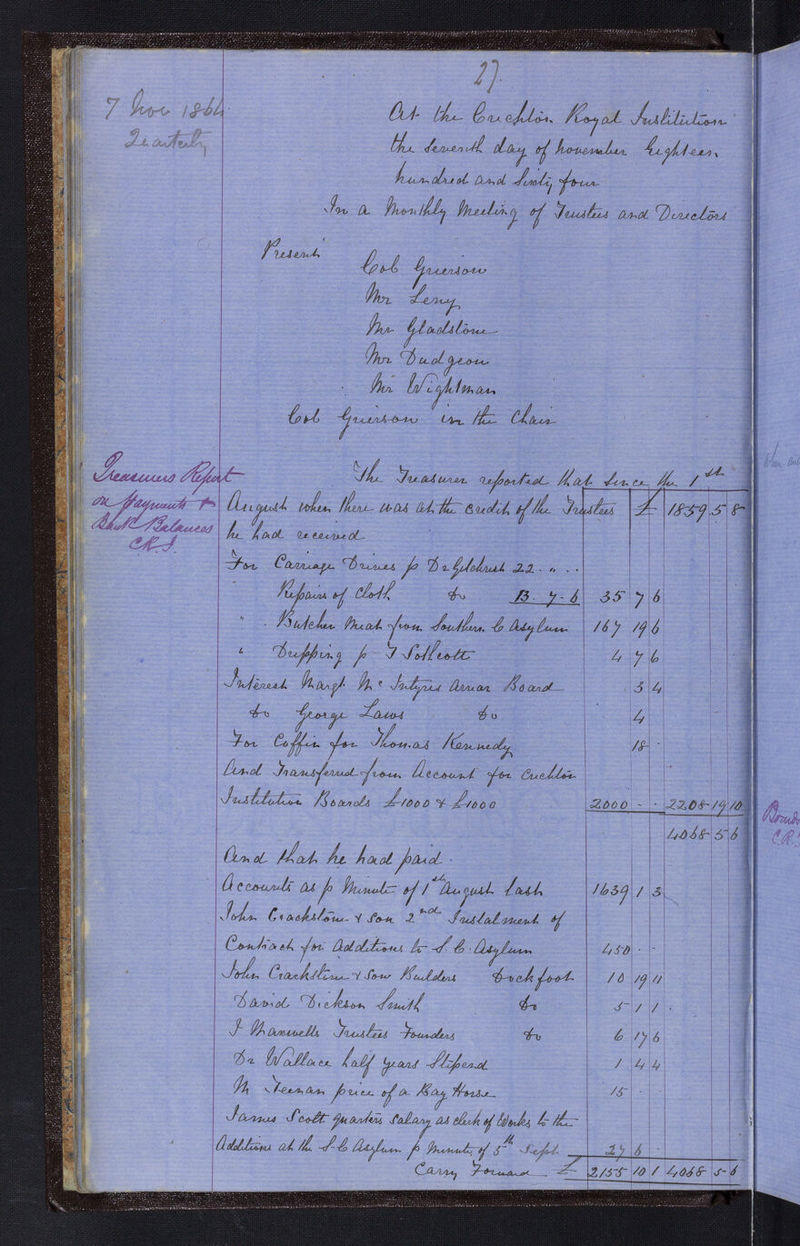 27.
7 Nov 1864
Quarterly
At the Crichton Royal Institution
the Seventh day of November Eighteen
hundred and Sixty four
In a Monthly Meeting of Trustees and Directors
Present
Col Grierson
Mr Leny
Mr Gladstone
Mr Dudgeon
Mr Wightman
Col Grierson in the Chair
Treasurers Report
on payments &
Bank Balances
C.R.I.
The Treasurer reported that since the 1st
August when there was at the credit of the Trustees £ 1859 5 8
he had received
For Carriage Drives p Dr Gilchrist 22 . " . .
Repairs of Cloth do 13 . 7 . 6 35 7 6
" Butcher Meat from Southern C Asylum 167 19 6
" Dripping p J Sothcott 4 7 6
Interest Margt McIntyres arrear Board 3 4
do George Laws do 4
For Coffin for Thomas Kennedy 18 -
And Transferred from Account for Crichton
Institution Boards £1000 & £1000 2000 - - 2208 19 10
4068 5 6
And that he had paid.
Accounts as p Minute of 1st August last 1639 1 3
John Crackstone & Son 2nd Instalment of
Contract for Additions to S. C. Asylum 450 - -
John Crackstone & Son Builders Dockfoot 10 19 11
David Dickson Smith do 5 1 1
J Maxwells Trustees Founders do 6 17 6
Dr Wallace half years Stipend 1 4 4
M Teenan price of a Bay Horse 15 - -
James Scott quarters Salary as clerk of Works to the
Additions at the S. C Asylum p Minute of 5th Sept 27 6 -
Carry Forward £ 2155 10 1 4068 5 6
C.R.